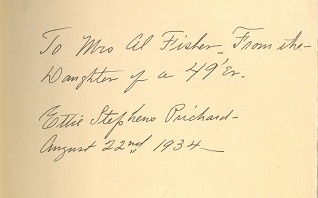 To Mrs Al Fisher. From the-
Daughter of a 49'er.
Ettie Stephens Prichard-
August 22nd 1934